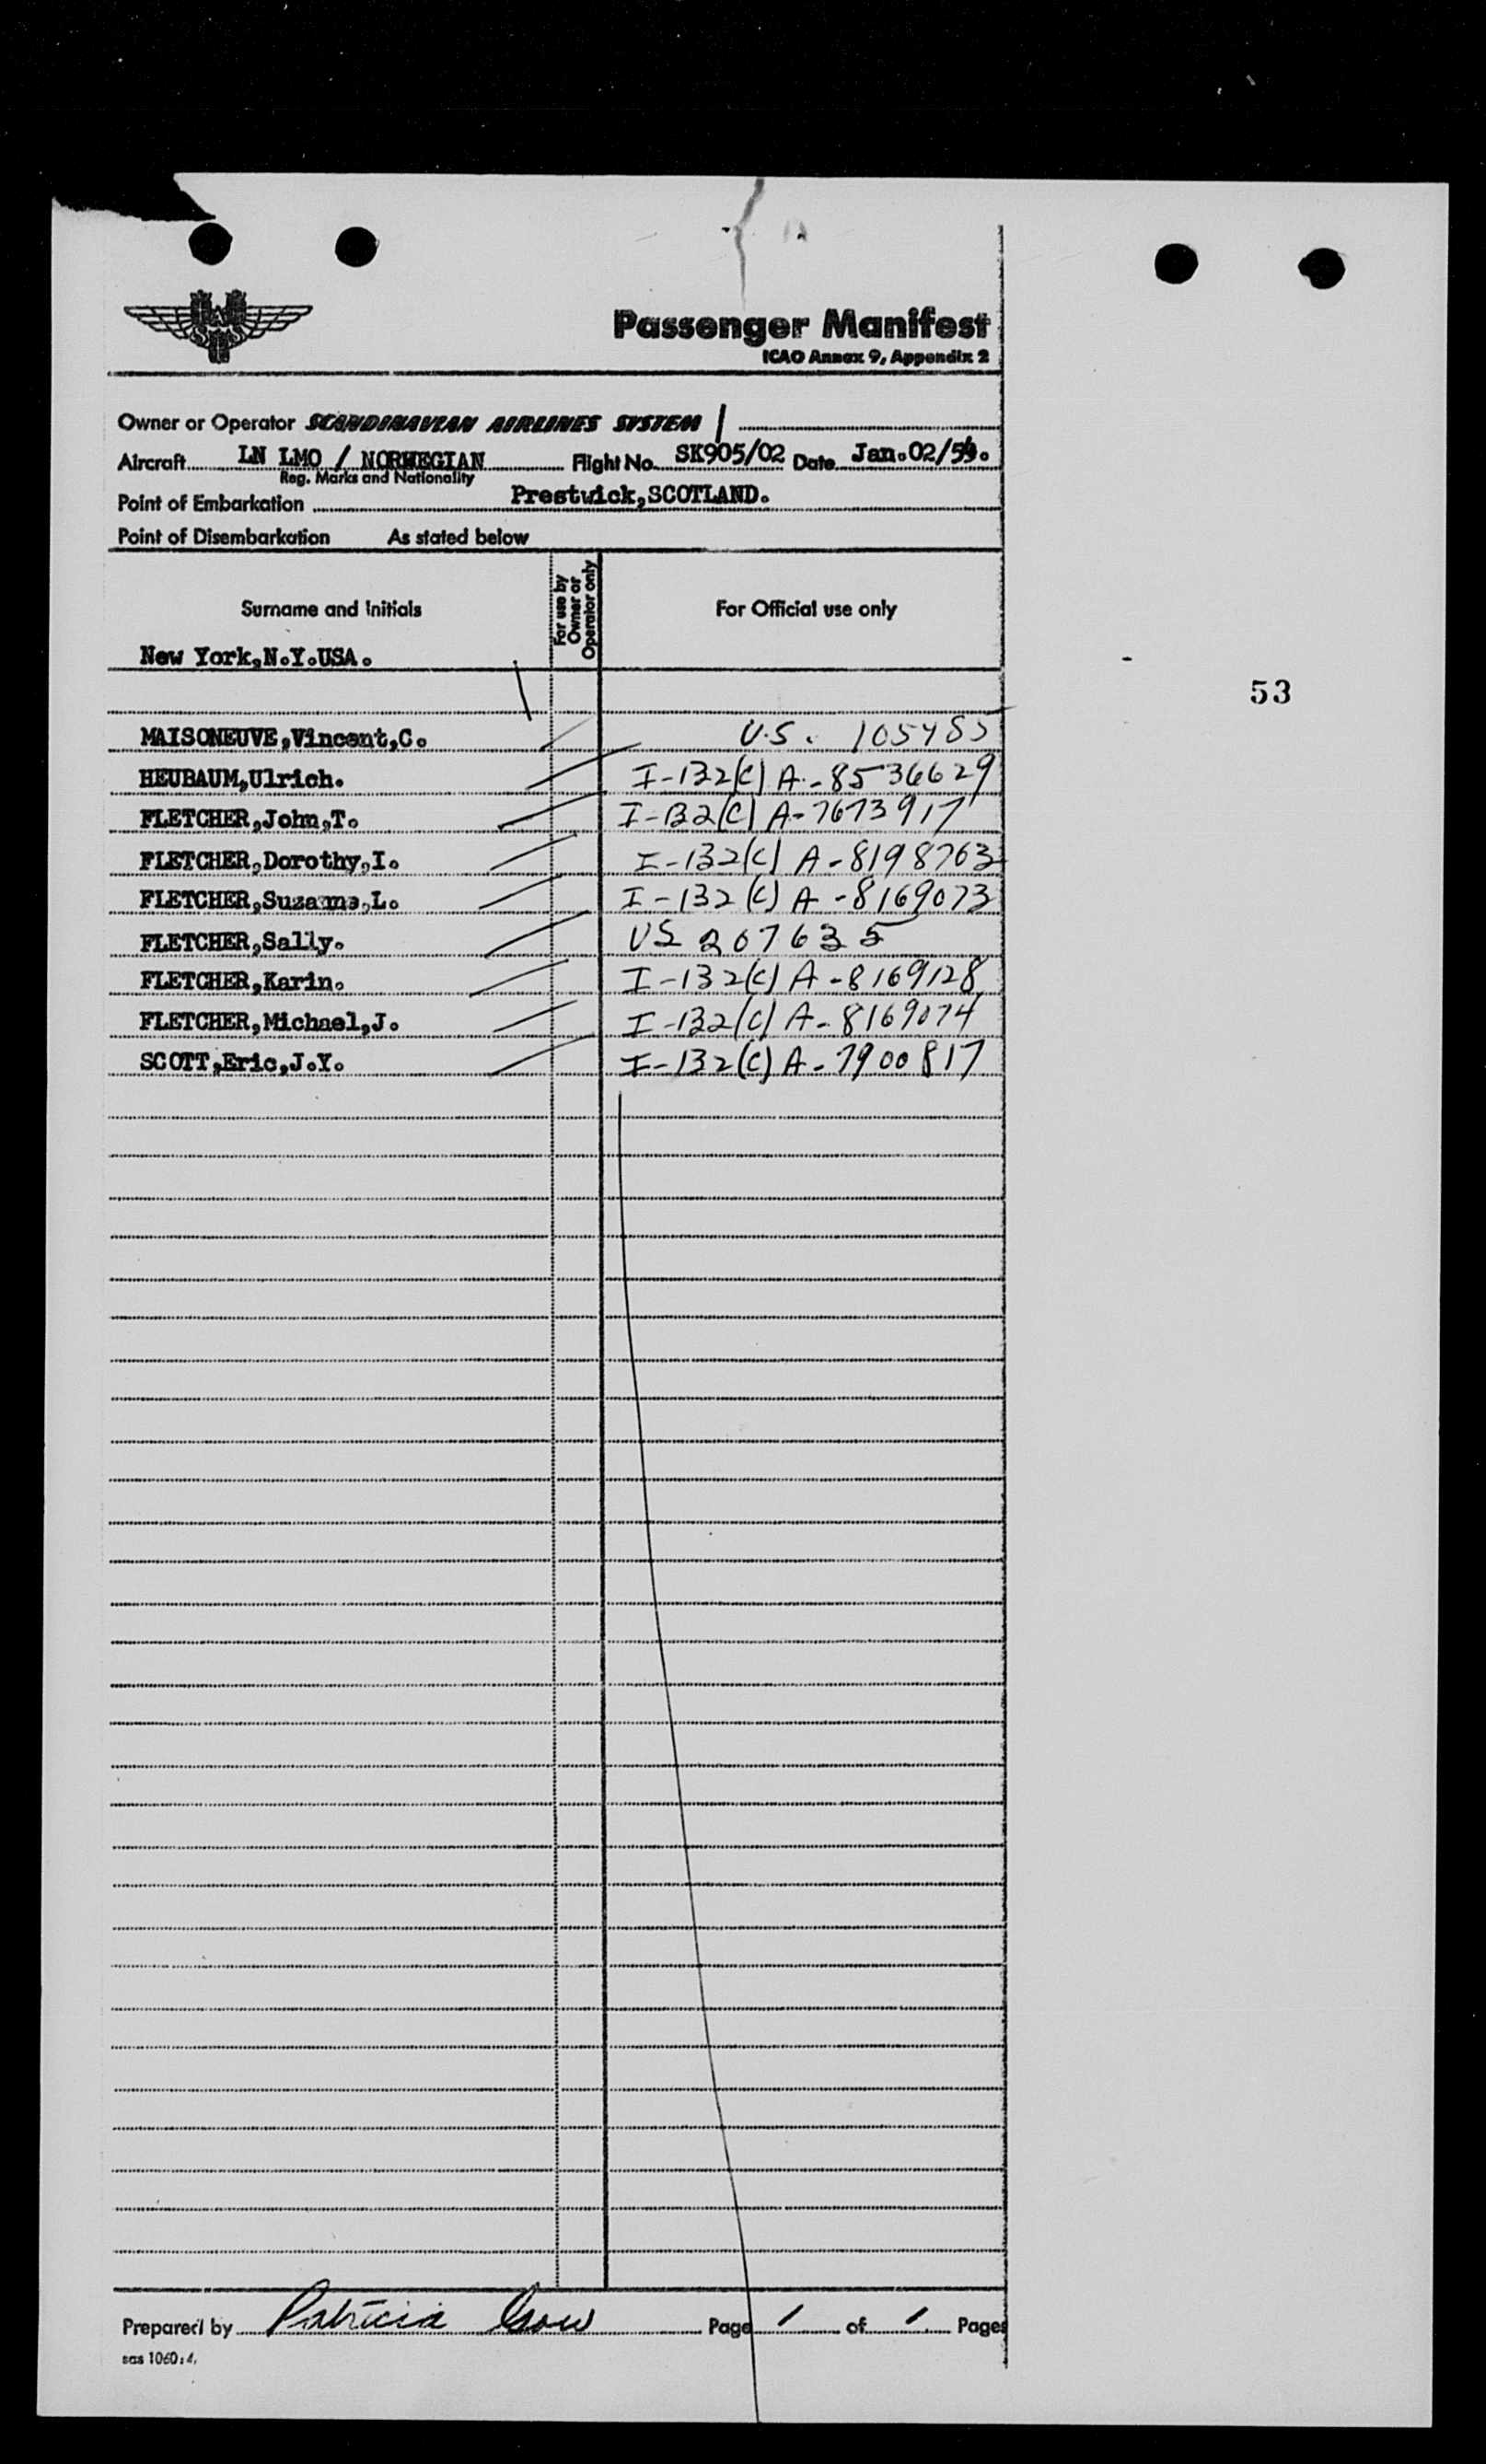 Passenger Manifest
ICAO Annex 9, Appendix 2
Owner or Operator SCANDINAVIAN AIRLINES SYSTEM
Aircraft LN LMO / NORWEGIAN Flight No. SK905/02 Date Jan.02/54.
Reg. Marks and Nationality
Point of Embarkation Prestwick,SCOTLAND.
Point of Disembarkation As stated below
Surname and Initials For use by Owner or Operator only For Official use only
New York,N.Y.USA.
53
MAISONEUVE,Vincent,C. U.S. 105485
HEUBAUM,Ulrich. I-132(C) A-8536629
FLETCHER,John,T. I-132(C) A-7673917
FLETCHER,Dorothy,I. I-132(C) A-8198763
FLETCHER,Suzanne,L. I-132(C) A-8169073
FLETCHER,Sally. US 207635
FLETCHER,Karin. I-132(C) A-8169128
FLETCHER,Michael,J. I-132(C) A-8169074
SCOTT,Eric,J.Y. I-132(C) A-7900817
Prepared by Patricia Gow Page 1 of 1 Pages
sas 1060:4.